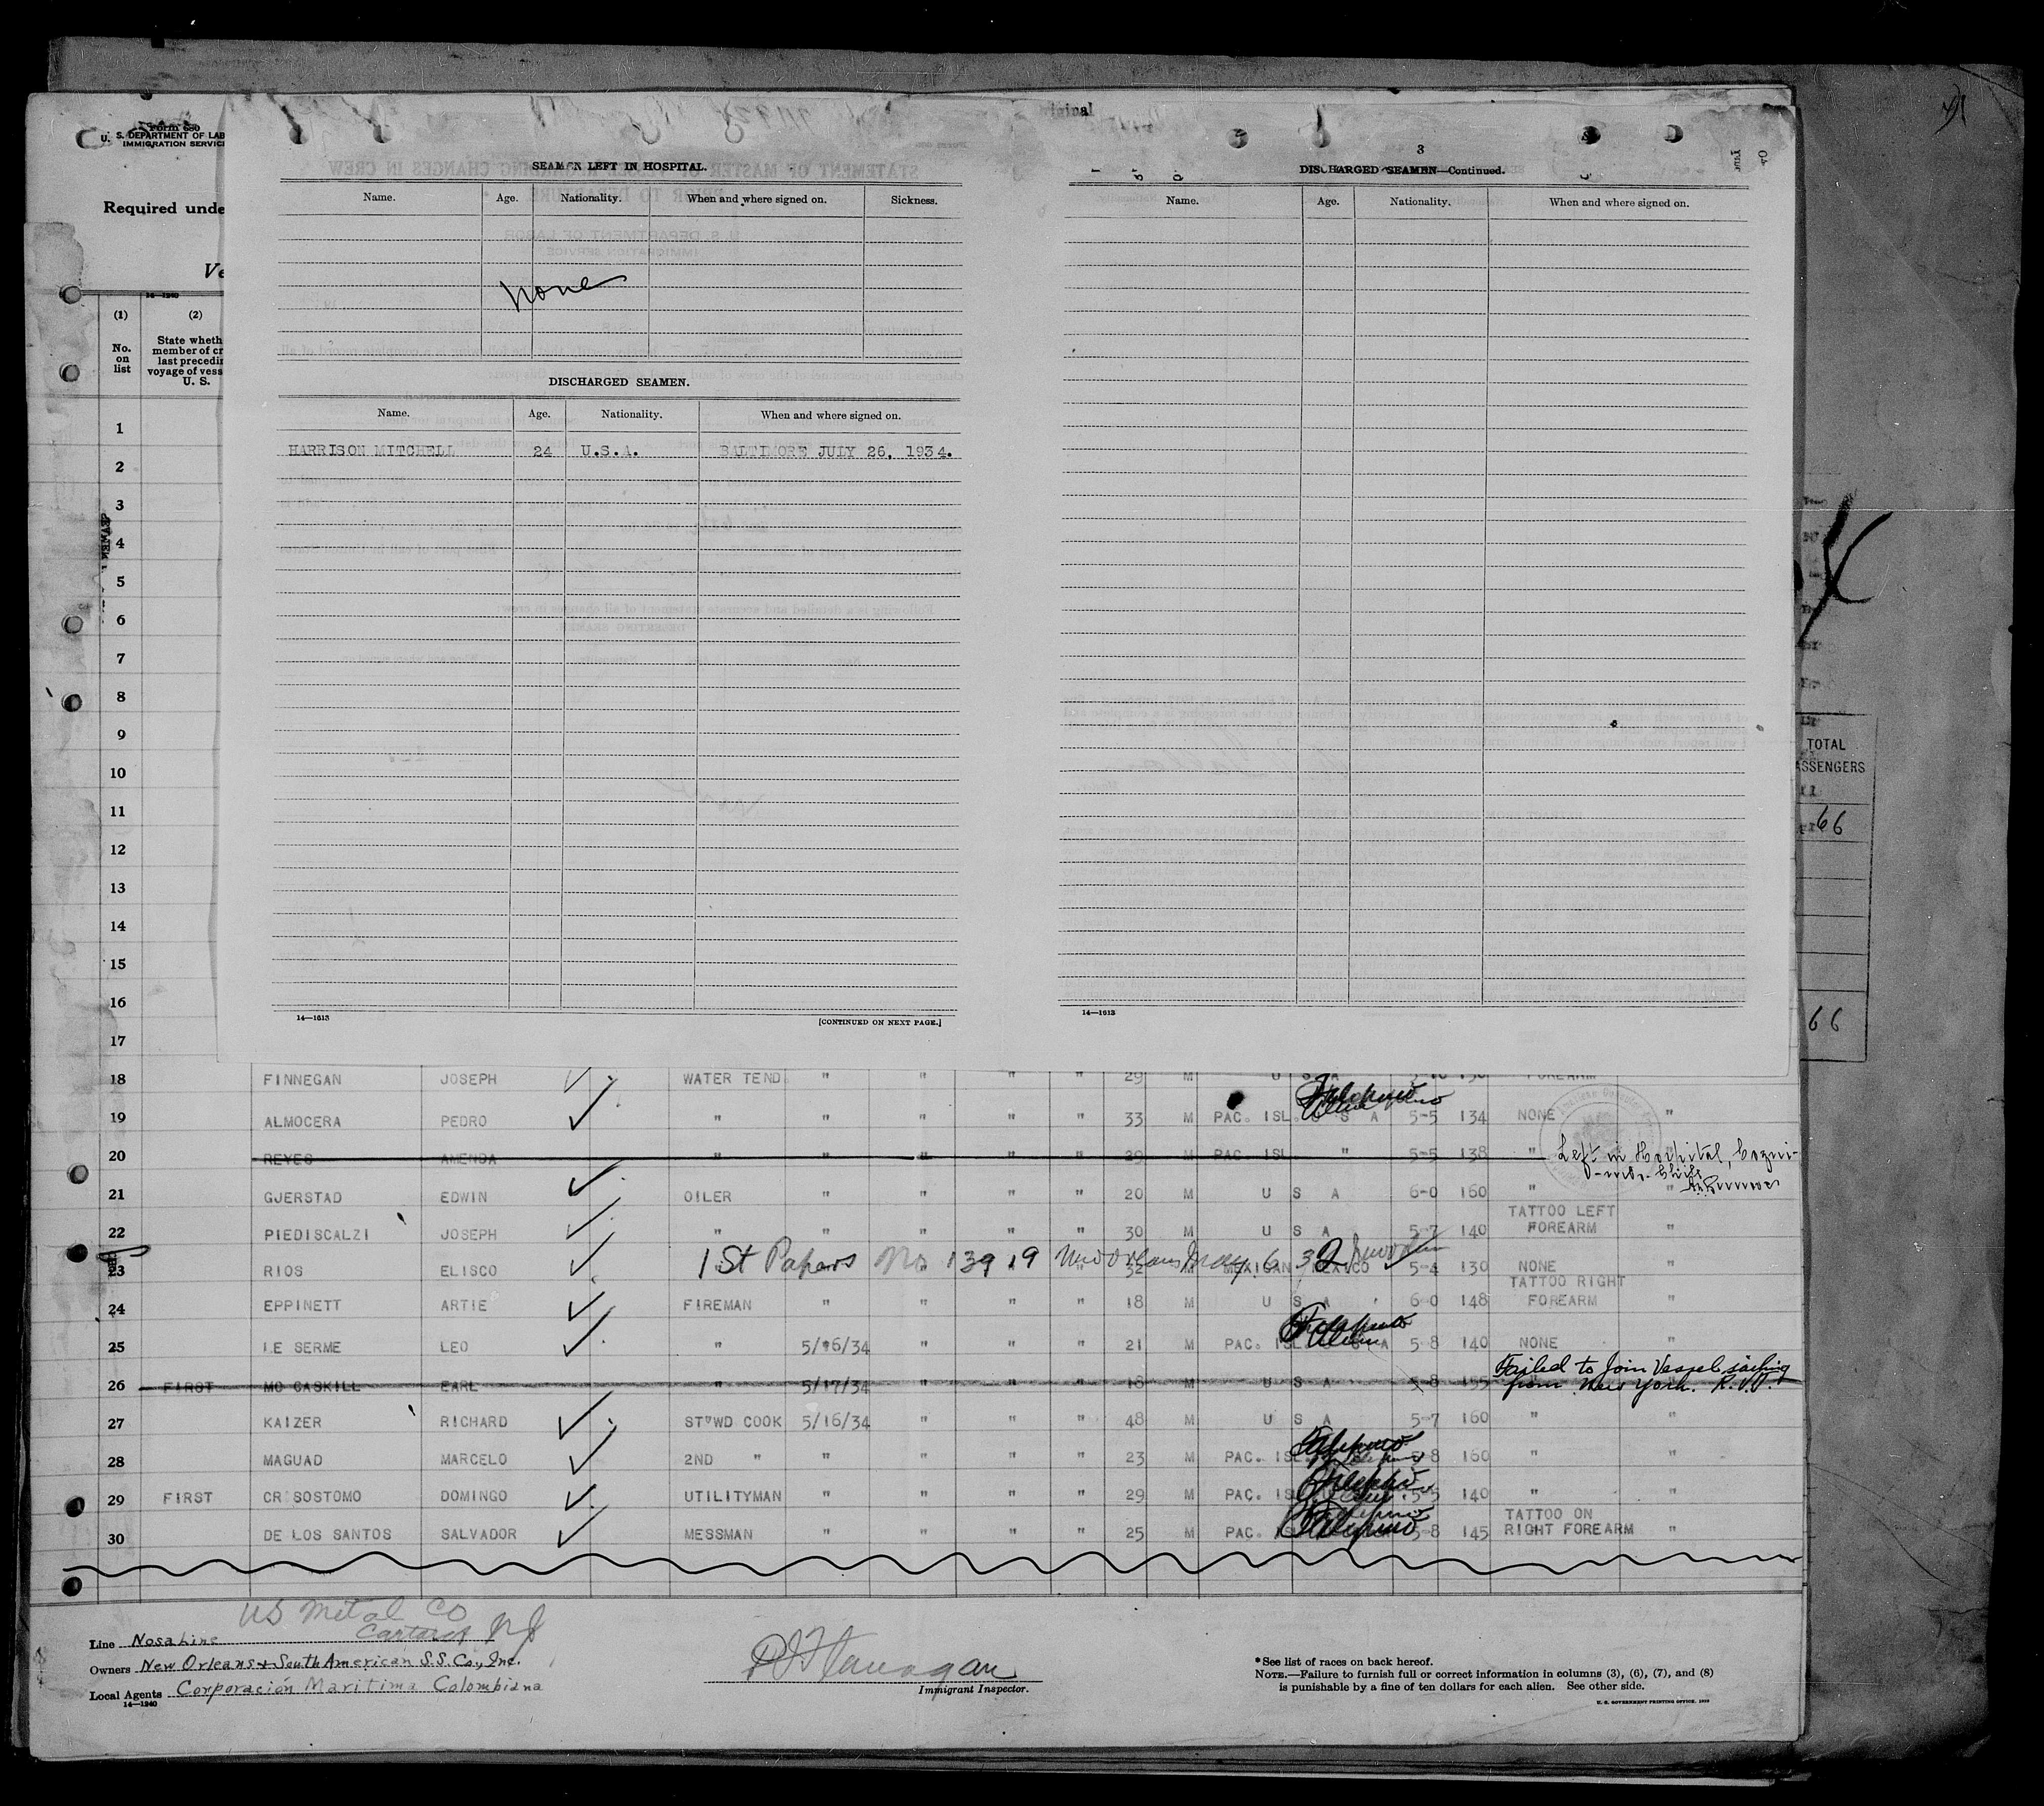 Form 680
U. S. DEPARTMENT OF LAB
IMMIGRATION SERVIC
Required unde
Ve
14-1240
(1)
No.
on
list
(2)
State wheth
member of cr
last precedin
voyage of vess
U. S.
SEAMEN LEFT IN HOSPITAL.
Name. Age. Nationality. When and where signed on. Sickness.
None
DISCHARGED SEAMEN.
Name. Age. Nationality. When and where signed on.
HARRISON MITCHELL 24 U.S.A. BALTIMORE JULY 26, 1934.
14—1613
[CONTINUED ON NEXT PAGE.]
3
DISCHARGED SEAMEN—Continued.
Name. Age. Nationality. When and where signed on.
14—1613
TOTAL
ASSENGERS
66
66
1
2
3
4
5
6
7
8
9
10
11
12
13
14
15
16
17
18 FINNEGAN JOSEPH WATER TEND. " " " " 29 M U S A FOREARM
19 ALMOCERA PEDRO " " " " " 33 M PAC. ISL. U S A 5-5 134 NONE "
20 REYES AMENSA " " " " " 29 M PAC. ISL " 5-5 138 " Left in Hospital,
21 GJERSTAD EDWIN OILER " " " " 20 M U S A 6-0 160 " "
22 PIEDISCALZI JOSEPH " " " " " 30 M U S A 5-7 140 TATTOO LEFT FOREARM "
23 RIOS ELISCO 1st Papers No 13919 New Orleans May 6 32 32 M MEXICAN MEXICO 5-4 130 NONE "
24 EPPINETT ARTIE FIREMAN " " " " 18 M U S A 6-0 148 TATTOO RIGHT FOREARM "
25 LE SERME LEO " 5/16/34 " " " 21 M PAC. ISL. U S A 5-8 140 NONE "
26 FIRST MC CASKILL EARL " 5/17/34 18 M U S A 5-8 155 Failed to Join Vessel sailing
from New York. R.V.J.
27 KAIZER RICHARD ST'WD COOK 5/16/34 " " " 48 M U S A 5-7 160 " "
28 MAGUAD MARCELO 2ND " " " " " 23 M PAC. ISL Filipino 5-8 160 " "
29 FIRST CRISOSTOMO DOMINGO UTILITYMAN " " " " 29 M PAC. ISL Filipino 5-5 140 " "
30 DE LOS SANTOS SALVADOR MESSMAN " " " " 25 M PAC. ISL Filipino 5-8 145 TATTOO ON RIGHT FOREARM "
US Metal Co
Carteret NJ
Line Nosa Line
Owners New Orleans & South American S.S. Co., Inc.
Local Agents Corporación Maritima Colombiana
14—1240
Immigrant Inspector.
*See list of races on back hereof.
NOTE.—Failure to furnish full or correct information in columns (3), (6), (7), and (8)
is punishable by a fine of ten dollars for each alien. See other side.
U. S. GOVERNMENT PRINTING OFFICE